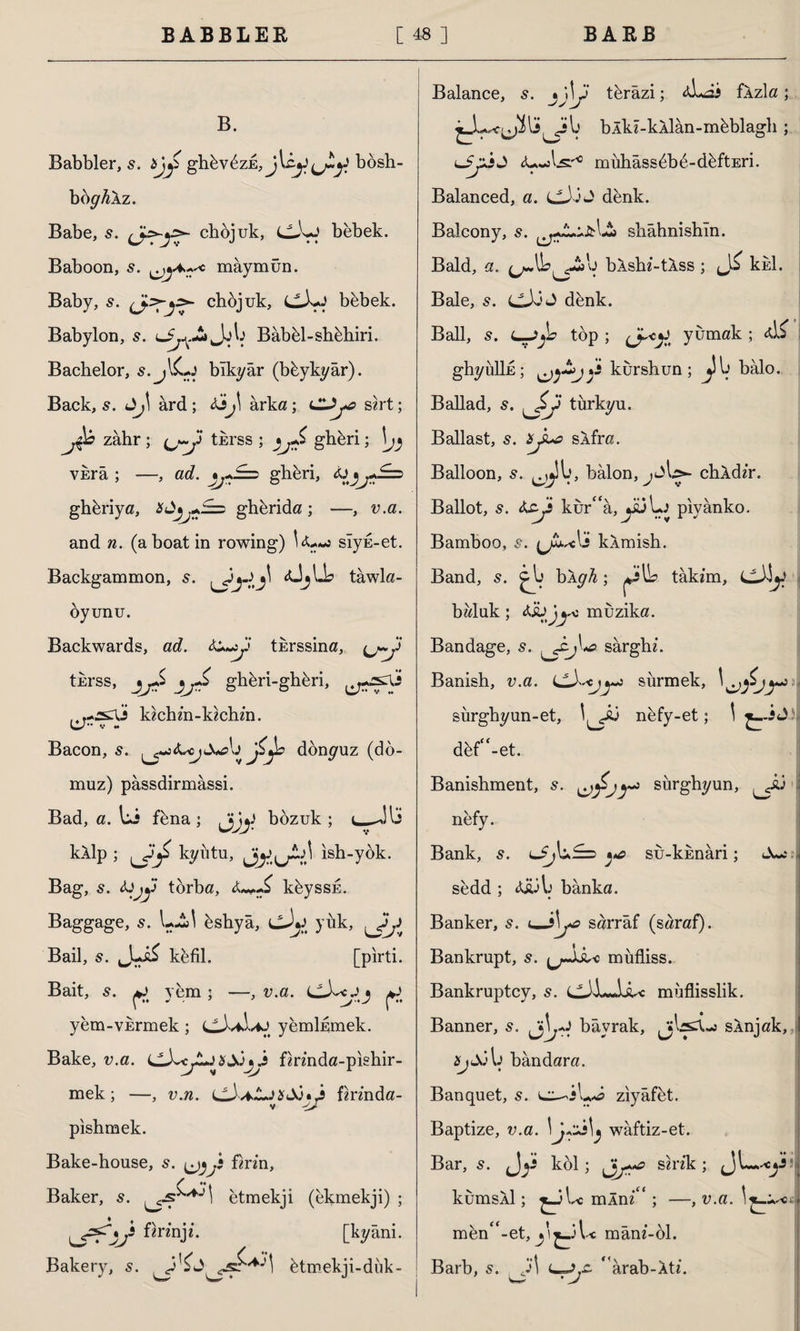 BABBLER [ 48 ] BARB
B.
Babbler, s. گوزه ghèvézᴇ, بوش بوغاز bòsh-
bòghᴀz.
Babe, s. چوجق chòjuk, ببك bèbek.
Baboon, s. ميمون màymūn.
Baby, s. چوجق chòjuk, ببك bèbek.
Babylon, s. بابل شهرى Bàbèl-shèhiri.
Bachelor, s. بكار bīkyār (bèykyār).
Back, s. ارد àrd; ارقه àrka; صرت sirt;
ظهر zàhr; ترس tᴇrss; كرى ghèri; ورا
vᴇrā; —, ad. كرى ghèri, كريه
ghèriya, كريده ghèrida; —, v.a.
and n. (a boat in rowing) سيه ا sīyᴇ-et.
Backgammon, s. طاوله اويونى tàwla-
òyunu.
Backwards, ad. ترسنه tᴇrssina, ترس
tᴇrss, كرى كرى ghèri-ghèri, قيچين
قيچين kichin-kichin.
Bacon, s. طوكز پاصديرمه سى dònguz (dò-
muz) pàssdirmàssi.
Bad, a. فنا fèna; بوزق bòzuk; قالپ
kᴀlp; كوتو kyùtu, ايش يوق ìsh-yòk.
Bag, s. توربه tòrba, كيسه kèyssᴇ.
Baggage, s. اشيا èshyā, يوك yùk, پرتى
Bail, s. كفيل kèfìl. [pìrti.
Bait, s. يم yèm; —, v.a. يم ويرمك
yèm-vᴇrmek; يملمك yèmlᴇmek.
Bake, v.a. فرونده پشيرمك firinda-pìshir-
mek; —, v.n. فرونده پشمك firinda-
pìshmek.
Bake-house, s. فرون firin,
Baker, s. اتمكجى ètmekji (èkmekji);
فرونجى firinji. [kyāni.
Bakery, s. اتمكجى دكانى ètmekji-dùk-
Balance, s. ترازى tèrāzi; فضله fᴀzla;
باقى قالان مبلغ bᴀkī-kᴀlàn-mèblagh;
محاسبه دفترى mùhāssébé-dèftᴇri.
Balanced, a. دنك dènk.
Balcony, s. شاهنشين shāhnishīn.
Bald, a. باشى طاس bᴀshi-tᴀss; كل kᴇl.
Bale, s. دنك dènk.
Ball, s. طوپ tòp; يومق yùmak; كله
ghyùllᴇ; قورشون kùrshun; بالو bàlo.
Ballad, s. توركى tùrkyu.
Ballast, s. صفره sᴀfra.
Balloon, s. بالون, bàlon, چادر chᴀdir.
Ballot, s. قرعه kùr‘‘à, پيانقو pìyànko.
Bamboo, s. قامش kᴀmish.
Band, s. باغ bᴀgh; طاقم tàkim, بولك
bɪluk; موزيقه mùzika.
Bandage, s. صارغى sàrghi.
Banish, v.a. سورمك sùrmek, سوركون ا
sùrghyun-et, نفى ا nèfy-et; دفع ا
dèf‘‘-et.
Banishment, s. سوركون sùrghyun, نفى
nèfy.
Bank, s. صو كنارى sù-kᴇnàri; سد
sèdd; بانقه bànka.
Banker, s. صراف sàrrāf (sàraf).
Bankrupt, s. مفلس mùfliss.
Bankruptcy, s. مفلسلك mùflisslik.
Banner, s. بيراق bāyrak, سنجاق sᴀnjak,
باندره bàndara.
Banquet, s. ضيافت zìyāfèt.
Baptize, v.a. وافتيز ا wàftiz-et.
Bar, s. قول kòl; صيريق sirik; قومسال
kùmsᴀl; مانع mᴀni‘‘; —, v.a. منع ا
mèn‘‘-et, مانع او māni-òl.
Barb, s. عرب آتى ‘‘àrab-ᴀti.